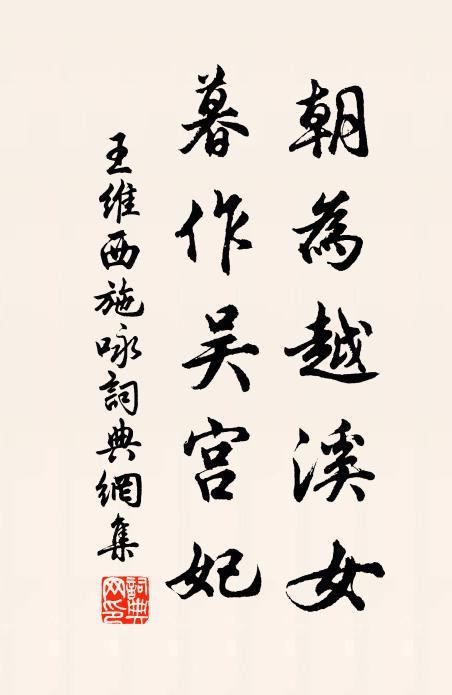 朝為越溪女
暮作吴宫妃
王維西施咏詞典網集
詞典网印